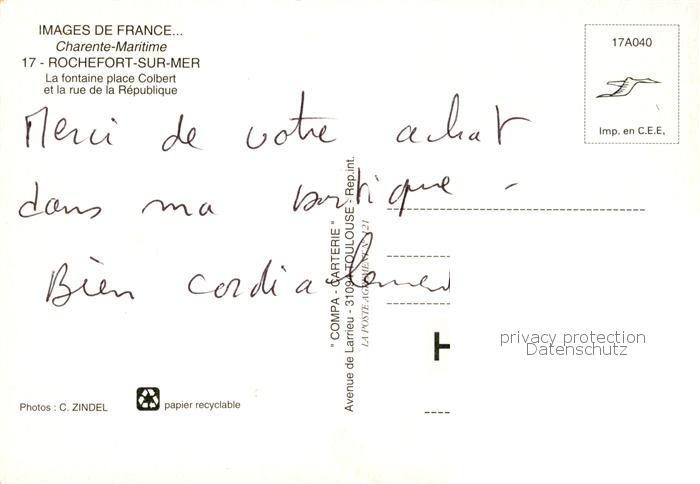 IMAGES DE FRANCE...
Charente-Maritime
17 - ROCHEFORT-SUR-MER
La fontaine place Colbert
et la rue de la République
17A040
Imp. en C.E.E.
Merci de votre achat
dans ma boutique -
Bien cordialement
" COMPA - CARTERIE "
Avenue de Larrieu - 31094 TOULOUSE - Rep.int.
LA POSTE 121
H
privacy protection
Datenschutz
Photos : C. ZINDEL
papier recyclable